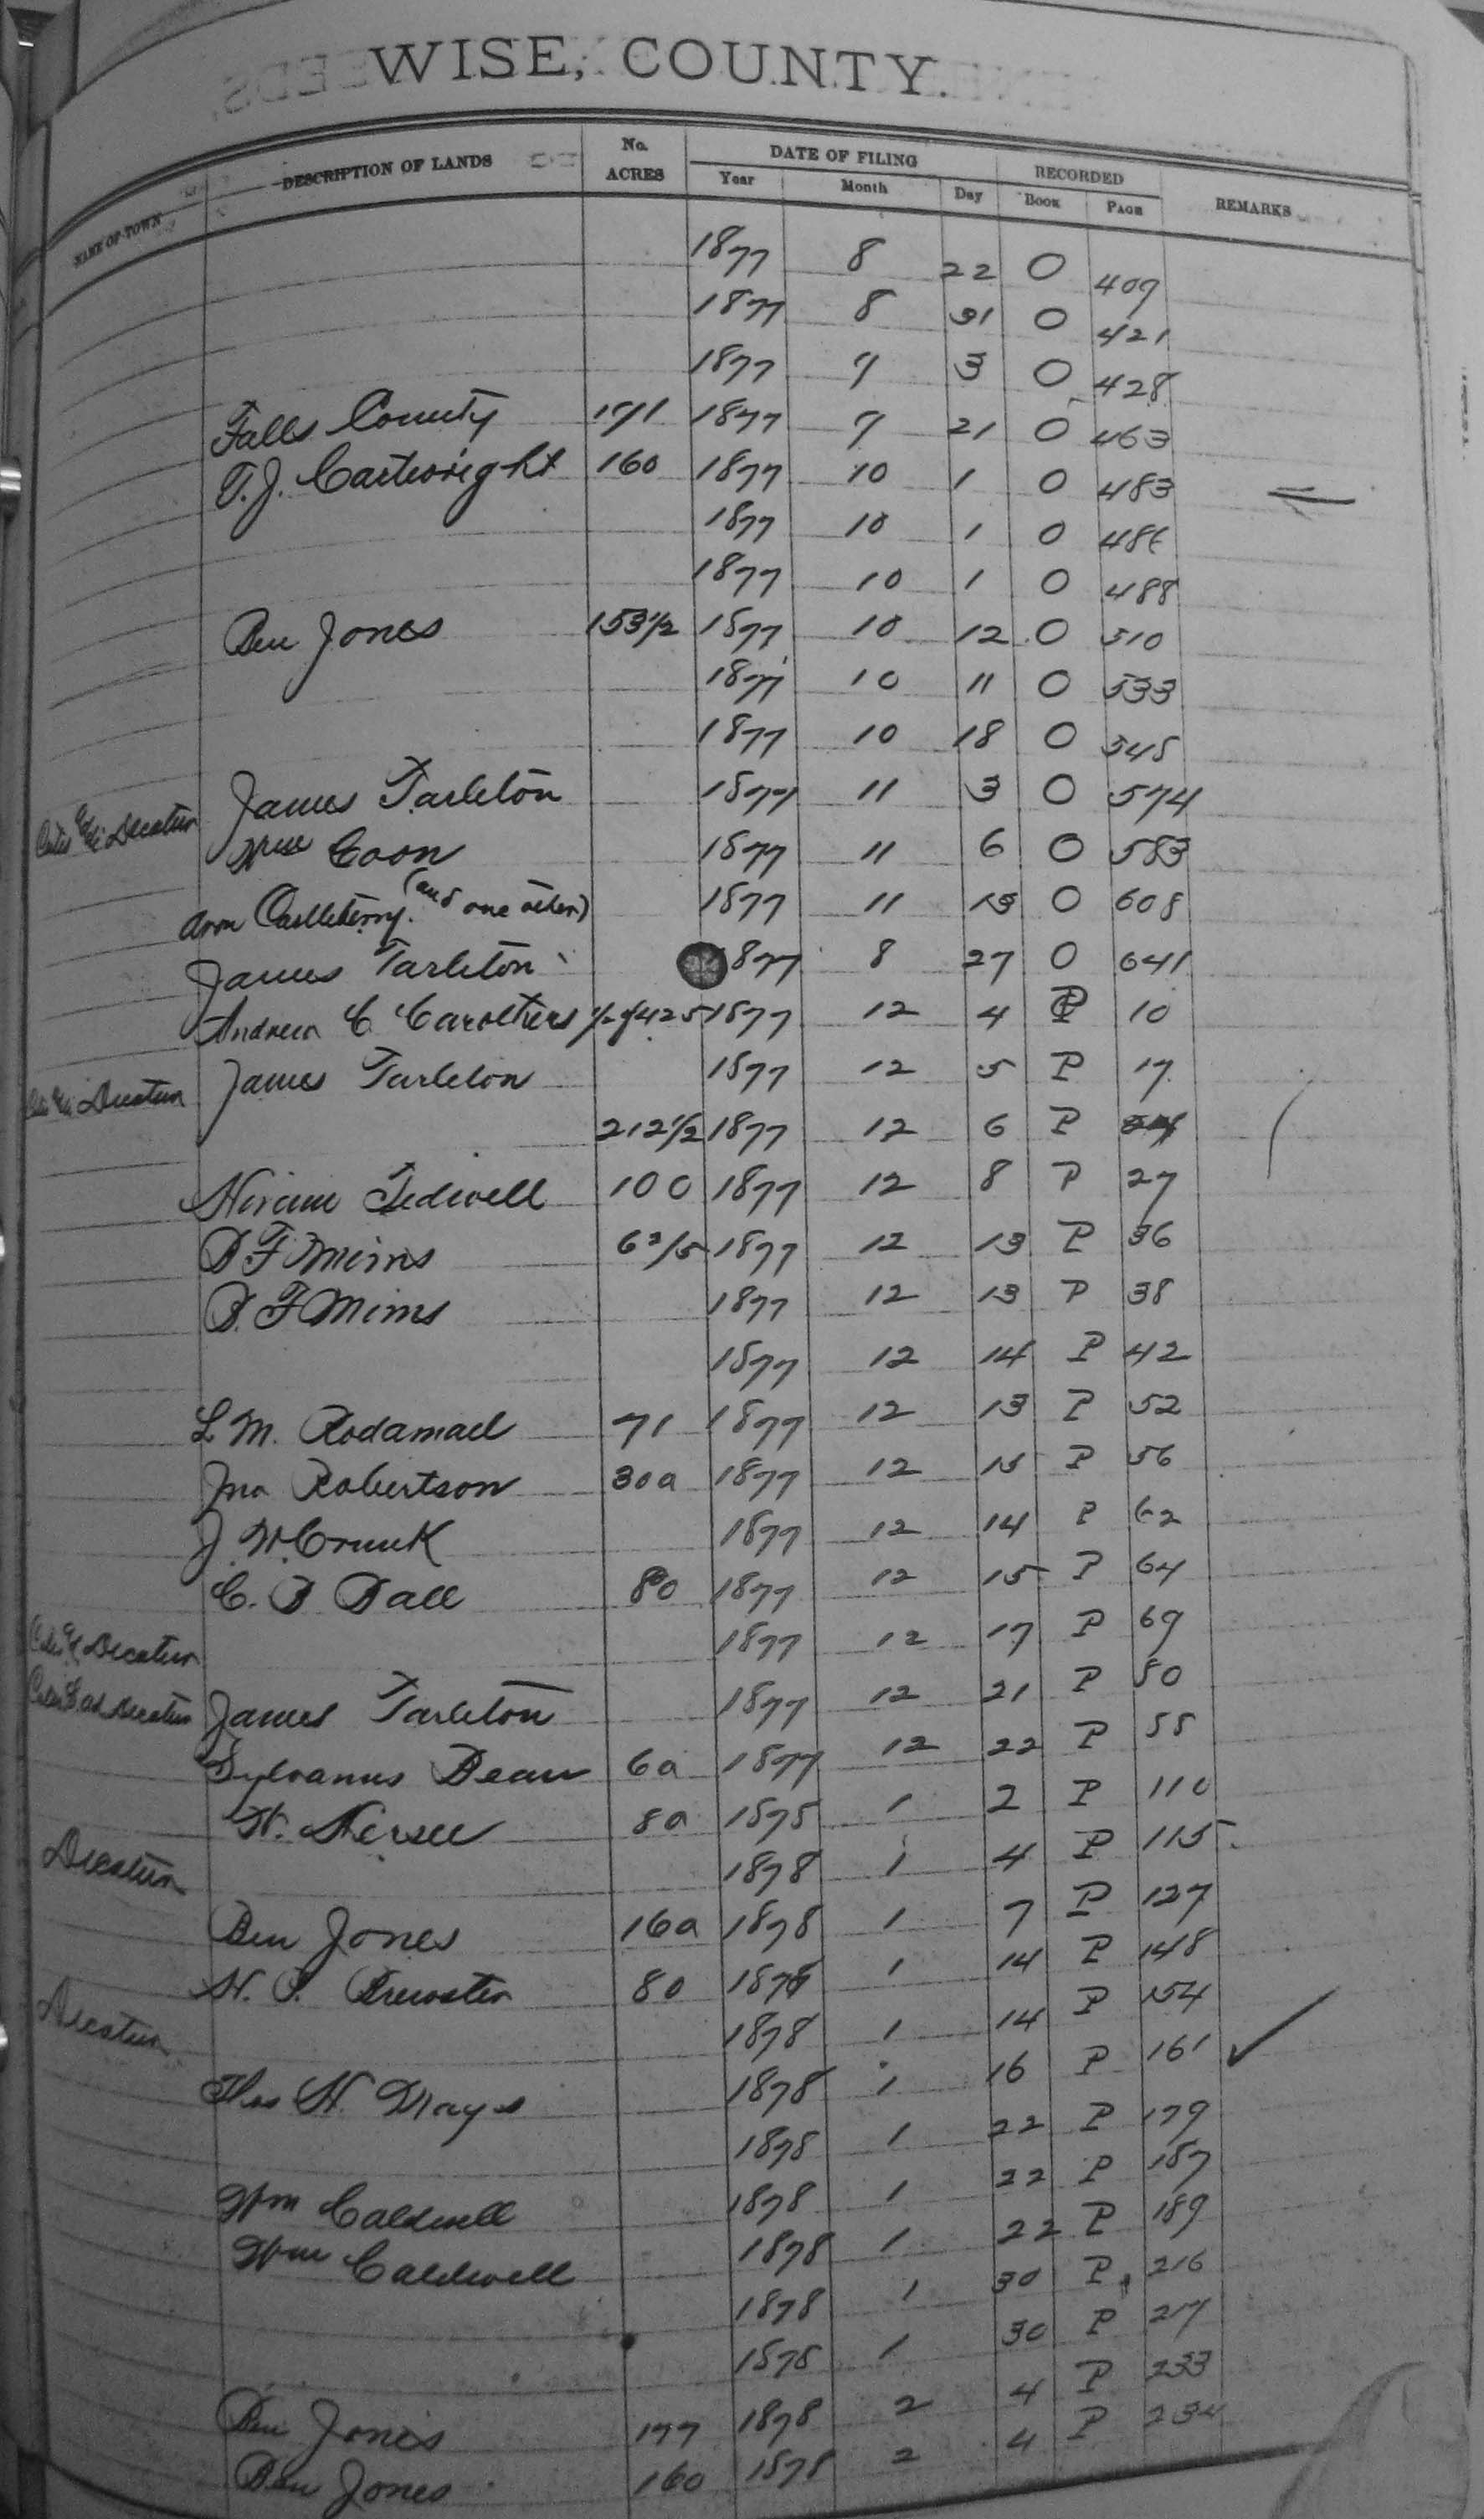 WISE, COUNTY.
NAME OF TOWN DESCRIPTION OF LANDS No. ACRES DATE OF FILING RECORDED REMARKS
Year Month Day Book Page
1877 8 22 O 409
1877 8 31 O 421
1877 9 3 O 428
Falls County 171 1877 9 21 O 463
T. J. Cartwright 160 1877 10 1 O 483
1877 10 1 O 486
1877 10 1 O 488
Ben Jones 153 1/2 1877 10 12 O 510
1877 10 11 O 533
1877 10 18 O 545
James Tarleton 1877 11 3 O 574
Decatur Coon 1877 11 6 O 583
Castleberry (and one other) 1877 11 13 O 608
James Tarleton 1877 8 27 O 641
Andrew C. Carothers 1/2 of 425 1877 12 4 P 10
Decatur James Tarleton 1877 12 5 P 17
212 1/2 1877 12 6 P
Hiram Tedwell 100 1877 12 8 P 27
B F Mims 6 2/5 1877 12 13 P 36
B. F Mims 1877 12 13 P 38
1877 12 14 P 42
L M. Rodamael 71 1877 12 13 P 52
Jno Robertson 30a 1877 12 15 P 56
J. W. Crunk 1877 12 14 P 62
C. B Ball 80 1877 12 15 P 64
Decatur 1877 12 17 P 69
Decatur James Tarleton 1877 12 21 P 80
Sylvanus Dean 6a 1877 12 22 P 88
H. 8a 1878 1 2 P 110
Decatur 1878 1 4 P 115
Ben Jones 16a 1878 1 7 P 127
H. P. Brewster 80 1878 1 14 P 148
Decatur 1878 1 14 P 154
Thos H. Mays 1878 1 16 P 161 ✓
1878 1 22 P 179
Wm Caldwell 1878 1 22 P 187
Wm Caldwell 1878 1 22 P 189
1878 1 30 P 216
1878 1 30 P 217
Ben Jones 177 1878 2 4 P 233
Ben Jones 160 1878 2 4 P 234